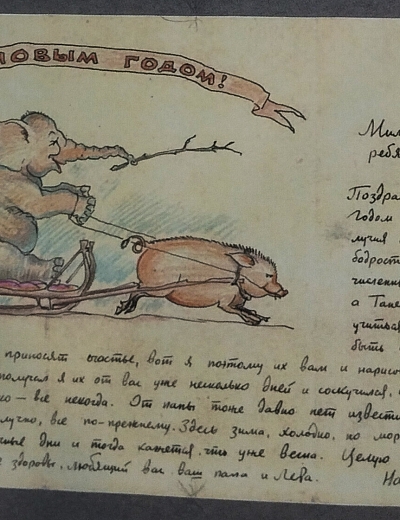 НОВЫМ ГОДОМ!
Мил
ребя
Поздра
годом
лучия
бодрост
численн
а Тане
учитыв
быть
приносят счастье, вот я поэтому их вам и нарисо
получил я их от вас уже несколько дней и соскучился,
ко — все некогда. От папы тоже давно нет извести
лучно, все по-прежнему. Здесь зима, холодно, но мор
дни и тогда кажется, что уже весна. Целую
здоровы. Любящий вас ваш папа и Лева.
На